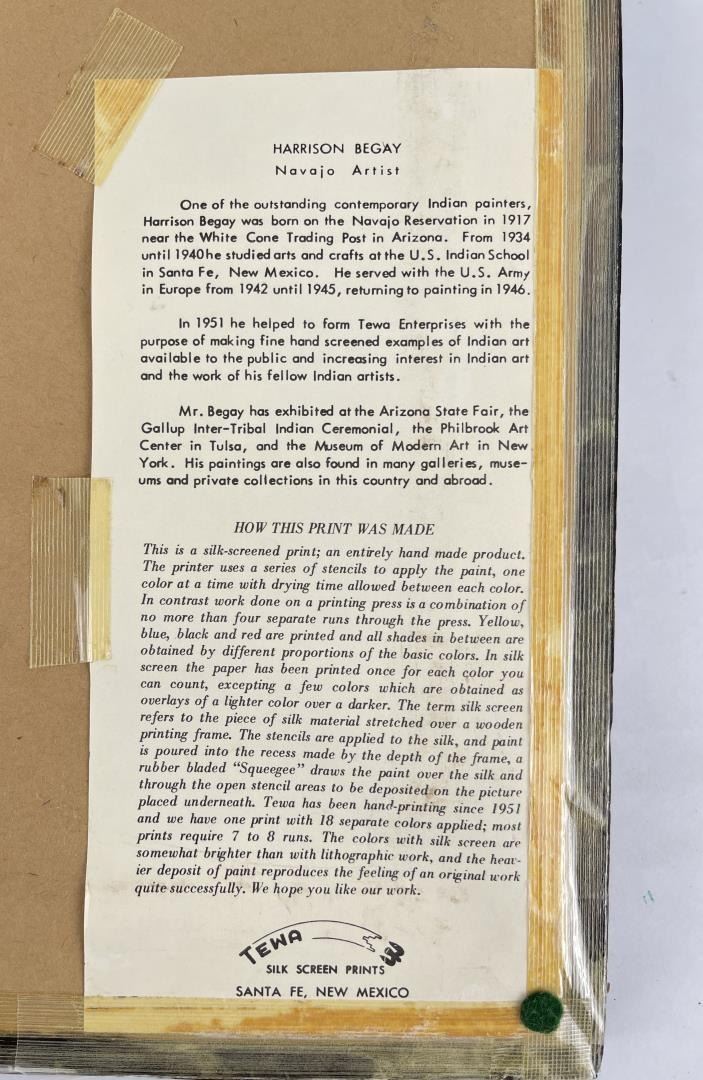 HARRISON BEGAY
Navajo Artist
One of the outstanding contemporary Indian painters,
Harrison Begay was born on the Navajo Reservation in 1917
near the White Cone Trading Post in Arizona. From 1934
until 1940 he studied arts and crafts at the U.S. Indian School
in Santa Fe, New Mexico. He served with the U.S. Army
in Europe from 1942 until 1945, returning to painting in 1946.
In 1951 he helped to form Tewa Enterprises with the
purpose of making fine hand screened examples of Indian art
available to the public and increasing interest in Indian art
and the work of his fellow Indian artists.
Mr. Begay has exhibited at the Arizona State Fair, the
Gallup Inter-Tribal Indian Ceremonial, the Philbrook Art
Center in Tulsa, and the Museum of Modern Art in New
York. His paintings are also found in many galleries, muse-
ums and private collections in this country and abroad.
HOW THIS PRINT WAS MADE
This is a silk-screened print; an entirely hand made product.
The printer uses a series of stencils to apply the paint, one
color at a time with drying time allowed between each color.
In contrast work done on a printing press is a combination of
no more than four separate runs through the press. Yellow,
blue, black and red are printed and all shades in between are
obtained by different proportions of the basic colors. In silk
screen the paper has been printed once for each color you
can count, excepting a few colors which are obtained as
overlays of a lighter color over a darker. The term silk screen
refers to the piece of silk material stretched over a wooden
printing frame. The stencils are applied to the silk, and paint
is poured into the recess made by the depth of the frame, a
rubber bladed "Squeegee" draws the paint over the silk and
through the open stencil areas to be deposited on the picture
placed underneath. Tewa has been hand-printing since 1951
and we have one print with 18 separate colors applied; most
prints require 7 to 8 runs. The colors with silk screen are
somewhat brighter than with lithographic work, and the heav-
ier deposit of paint reproduces the feeling of an original work
quite successfully. We hope you like our work.
TEWA
SILK SCREEN PRINTS
SANTA FE, NEW MEXICO